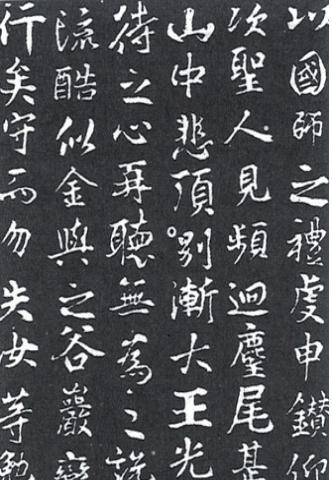 以國師之禮虔申鑽仰
次聖人見頻迴麈尾甚
山中悲頂別漸大王光
待之心再聽無為之說
流酷似金與之谷巖巒
行矣守而勿失女等勉